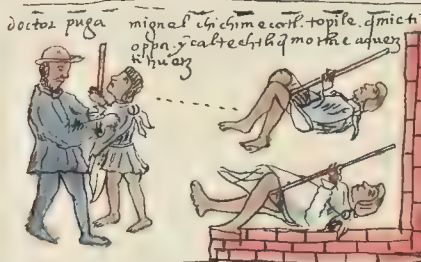 doctor puga
miguel chichimecatl. topile. q̃micti
oppa. y caltechtli q̃ motine aquez
tihuez